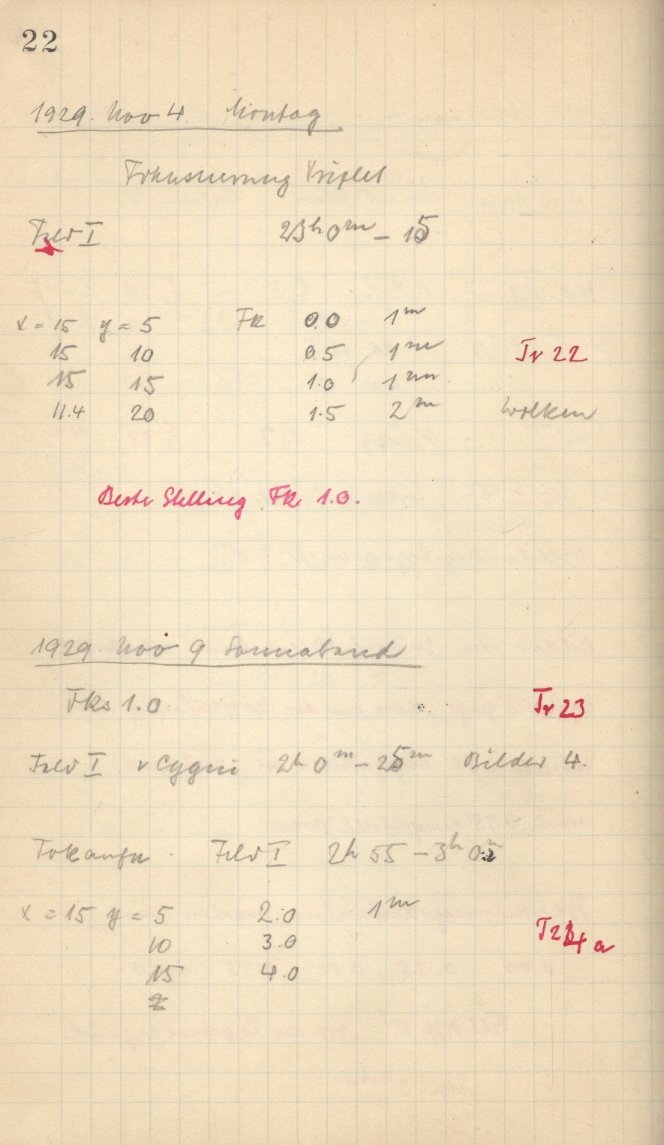 22
1929. Nov 4. Montag
Fokussierung Triplet
Feld I 23h 0m – 15
x = 15 y = 5 Fk 0.0 1m
15 10 0.5 1m Tr 22
15 15 1.0 1m
11.4 20 1.5 2m Wolken
Beste Stellung Fk 1.0.
1929. Nov 9 Sonnabend
Fks 1.0 Tr 23
Feld I ν Cygni 2h 0m – 25m Bilder 4.
Fokaufn. Feld I 2h 55 – 3h 05
x = 15 y = 5 2.0 1m
10 3.0 T24a
15 4.0